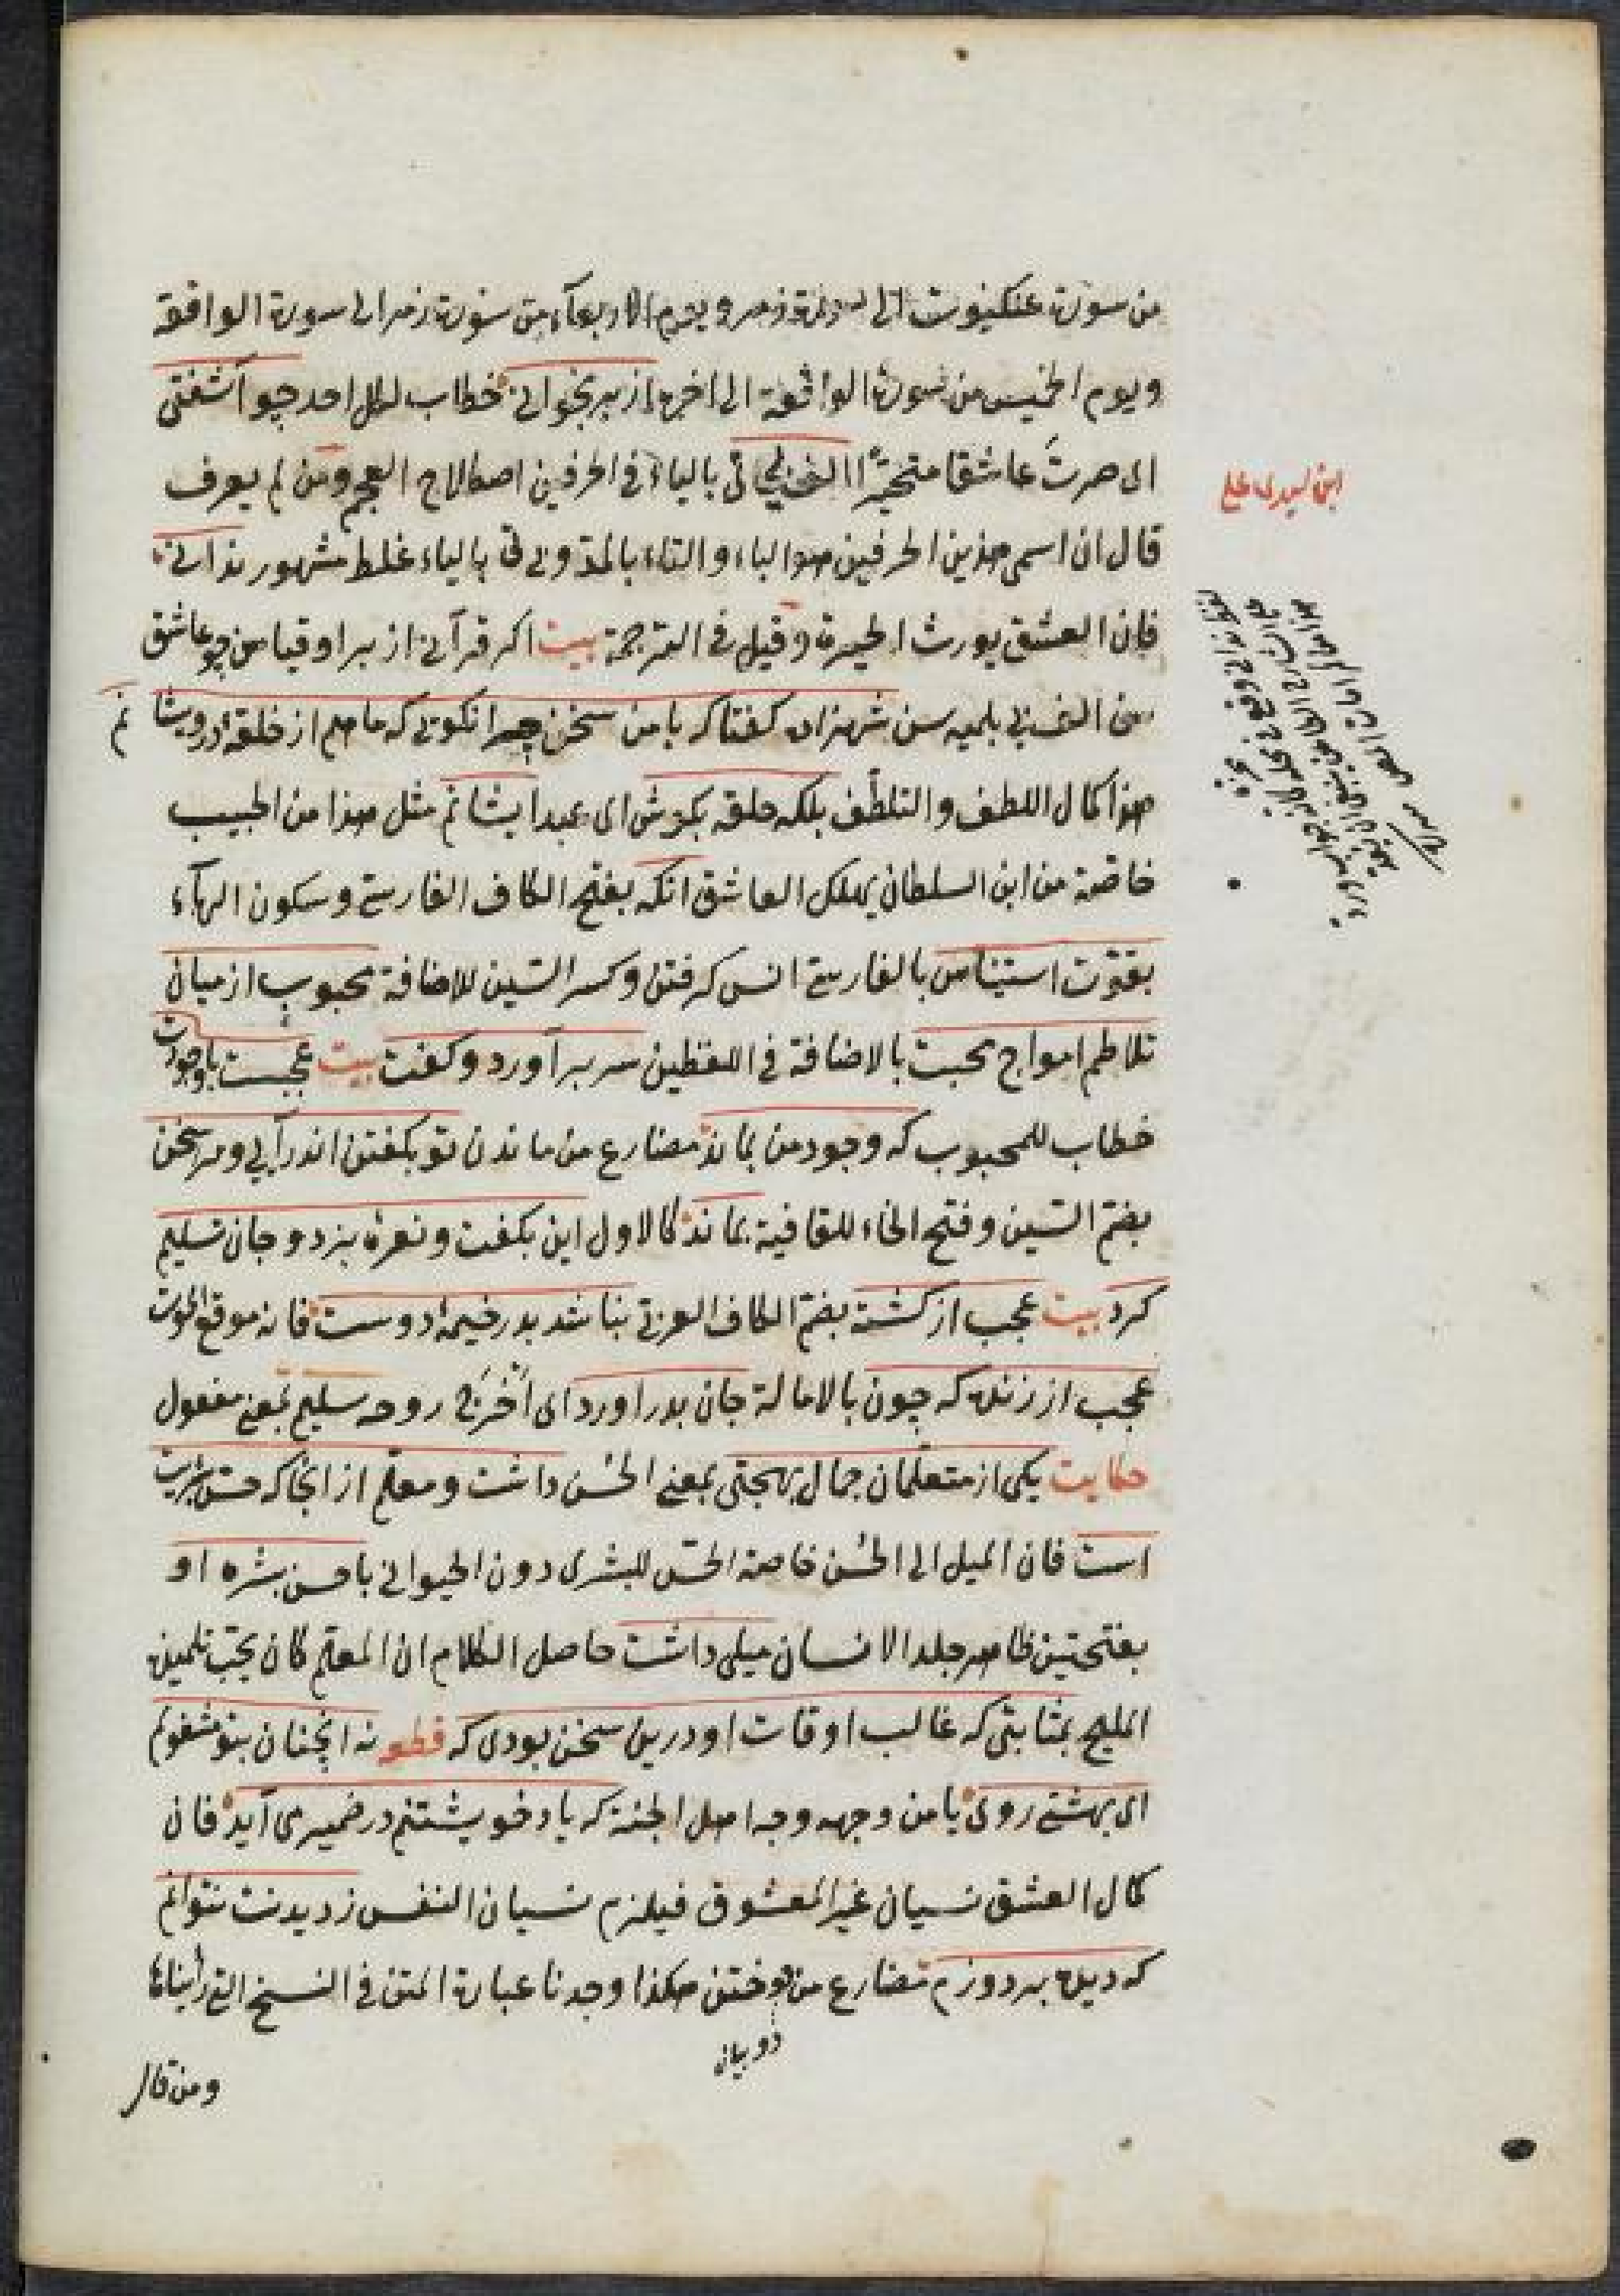 من سورة عنكبوت الى سورة زمر ويوم الاربعاء من سورة زمر الى سورة الواقعة
ويوم الخميس من سورة الواقعة الى اخره از بر بخوانى خطاب لكل احد چو آشفتى
اى صرت عاشقا متحيرًا الف بى تى بالياء فى الحرفين اصطلاح العجم ومن لم يعرف
قال ان اسمى هذين الحرفين هو الباء والتاء بالمد وبى تى بالياء غلط مشهور ندانى
فان العشق يورث الحيرة وقيل فى الترجمة بيت اكر قرآنى از بر اوقيا سن چو عاشق
سن الف بى بلميه سن شهزاده كفتا كه با من سخن چرا نكويى كه ما هم از حلقه درويشا
نم
هذا كمال اللطف والتلطّف بلكه حلقه بكوش اى عبد ايشانم مثل هذا من الحبيب
خاصّة من ابن السلطان يملك العاشق انكه بفتح الكاف الفارسية وسكون الهاء
بقوّت استيناس بالفارسية انس كرفتن وكسر السّين للاضافة محبوب از ميان
تلاطم امواج محبت بالاضافة فى اللفظين سر بر آورد وكفت بيت عجبست با وجودت
خطاب للمحبوب كه وجود من بماند مضارع من ماندن تو بكفتن اندر آيى ومرا سخن
بضمّ السّين وفتح الخاء للقافية بماند كالاول اين بكفت ونعرهٔ بزد وجان تسليم
كرد بيت عجب از كشته بضمّ الكاف العربى نباشد بدر خيمهٔ دوست فانه موقع الموت
عجب از زنده كه چون بالامالة جان بدر آورد اى اخرج روحه سليم بمعنى مفعول
حكايت يكى از متعلّمان جمال بهجتى بمعنى الحُسن داشت ومعلّم از انجا كه حسّ بشريت
است فان الميل الى الحُسن خاصة الحسّ للبشرى دون الحيوانى با حسن بشرهٔ او
بفتحتين ظاهر جلد الانسان ميلى داشت حاصل الكلام ان المعلّم كان يحبّ تلميذه
المليح بمثابتى كه غالب اوقات او درين سخن بودى كه قطعه نه انچنان بتو مشغولم
اى بهشتى روى يا من وجهه وجه اهل الجنة كه ياد خويشتنم در ضمير مى آيد فان
كمال العشق نسيان غير المعشوق فيلزم نسيان النفس ز ديدنت نتوانم
كه ديده بر دوزم مضارع من دوختن هكذا وجدنا عبارة المتن فى النسخ التى رأيناها
ومن قال